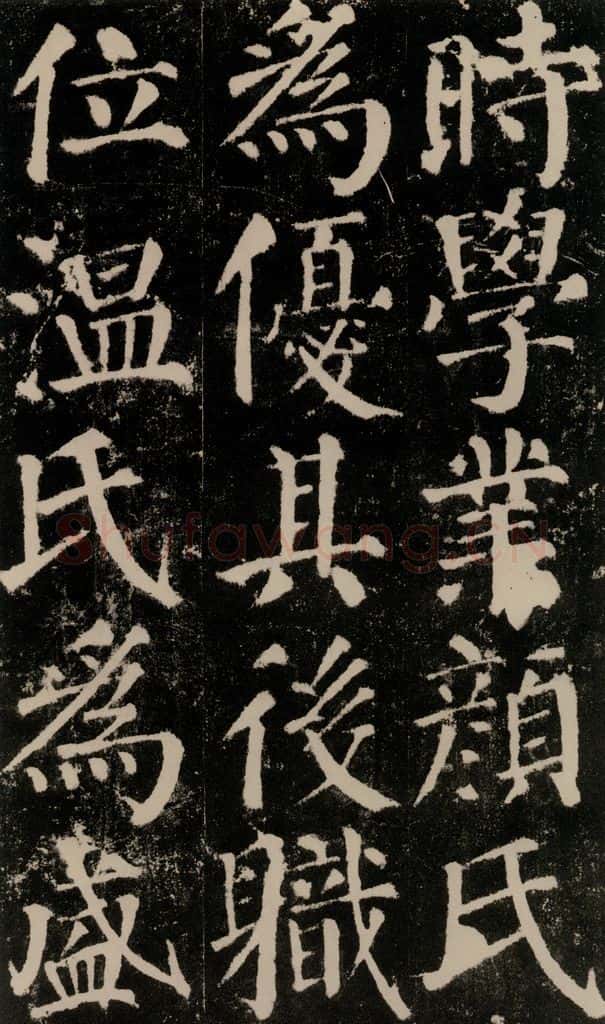 時學業顏氏
為優其後職
位溫氏為盛
Shufawang.CN